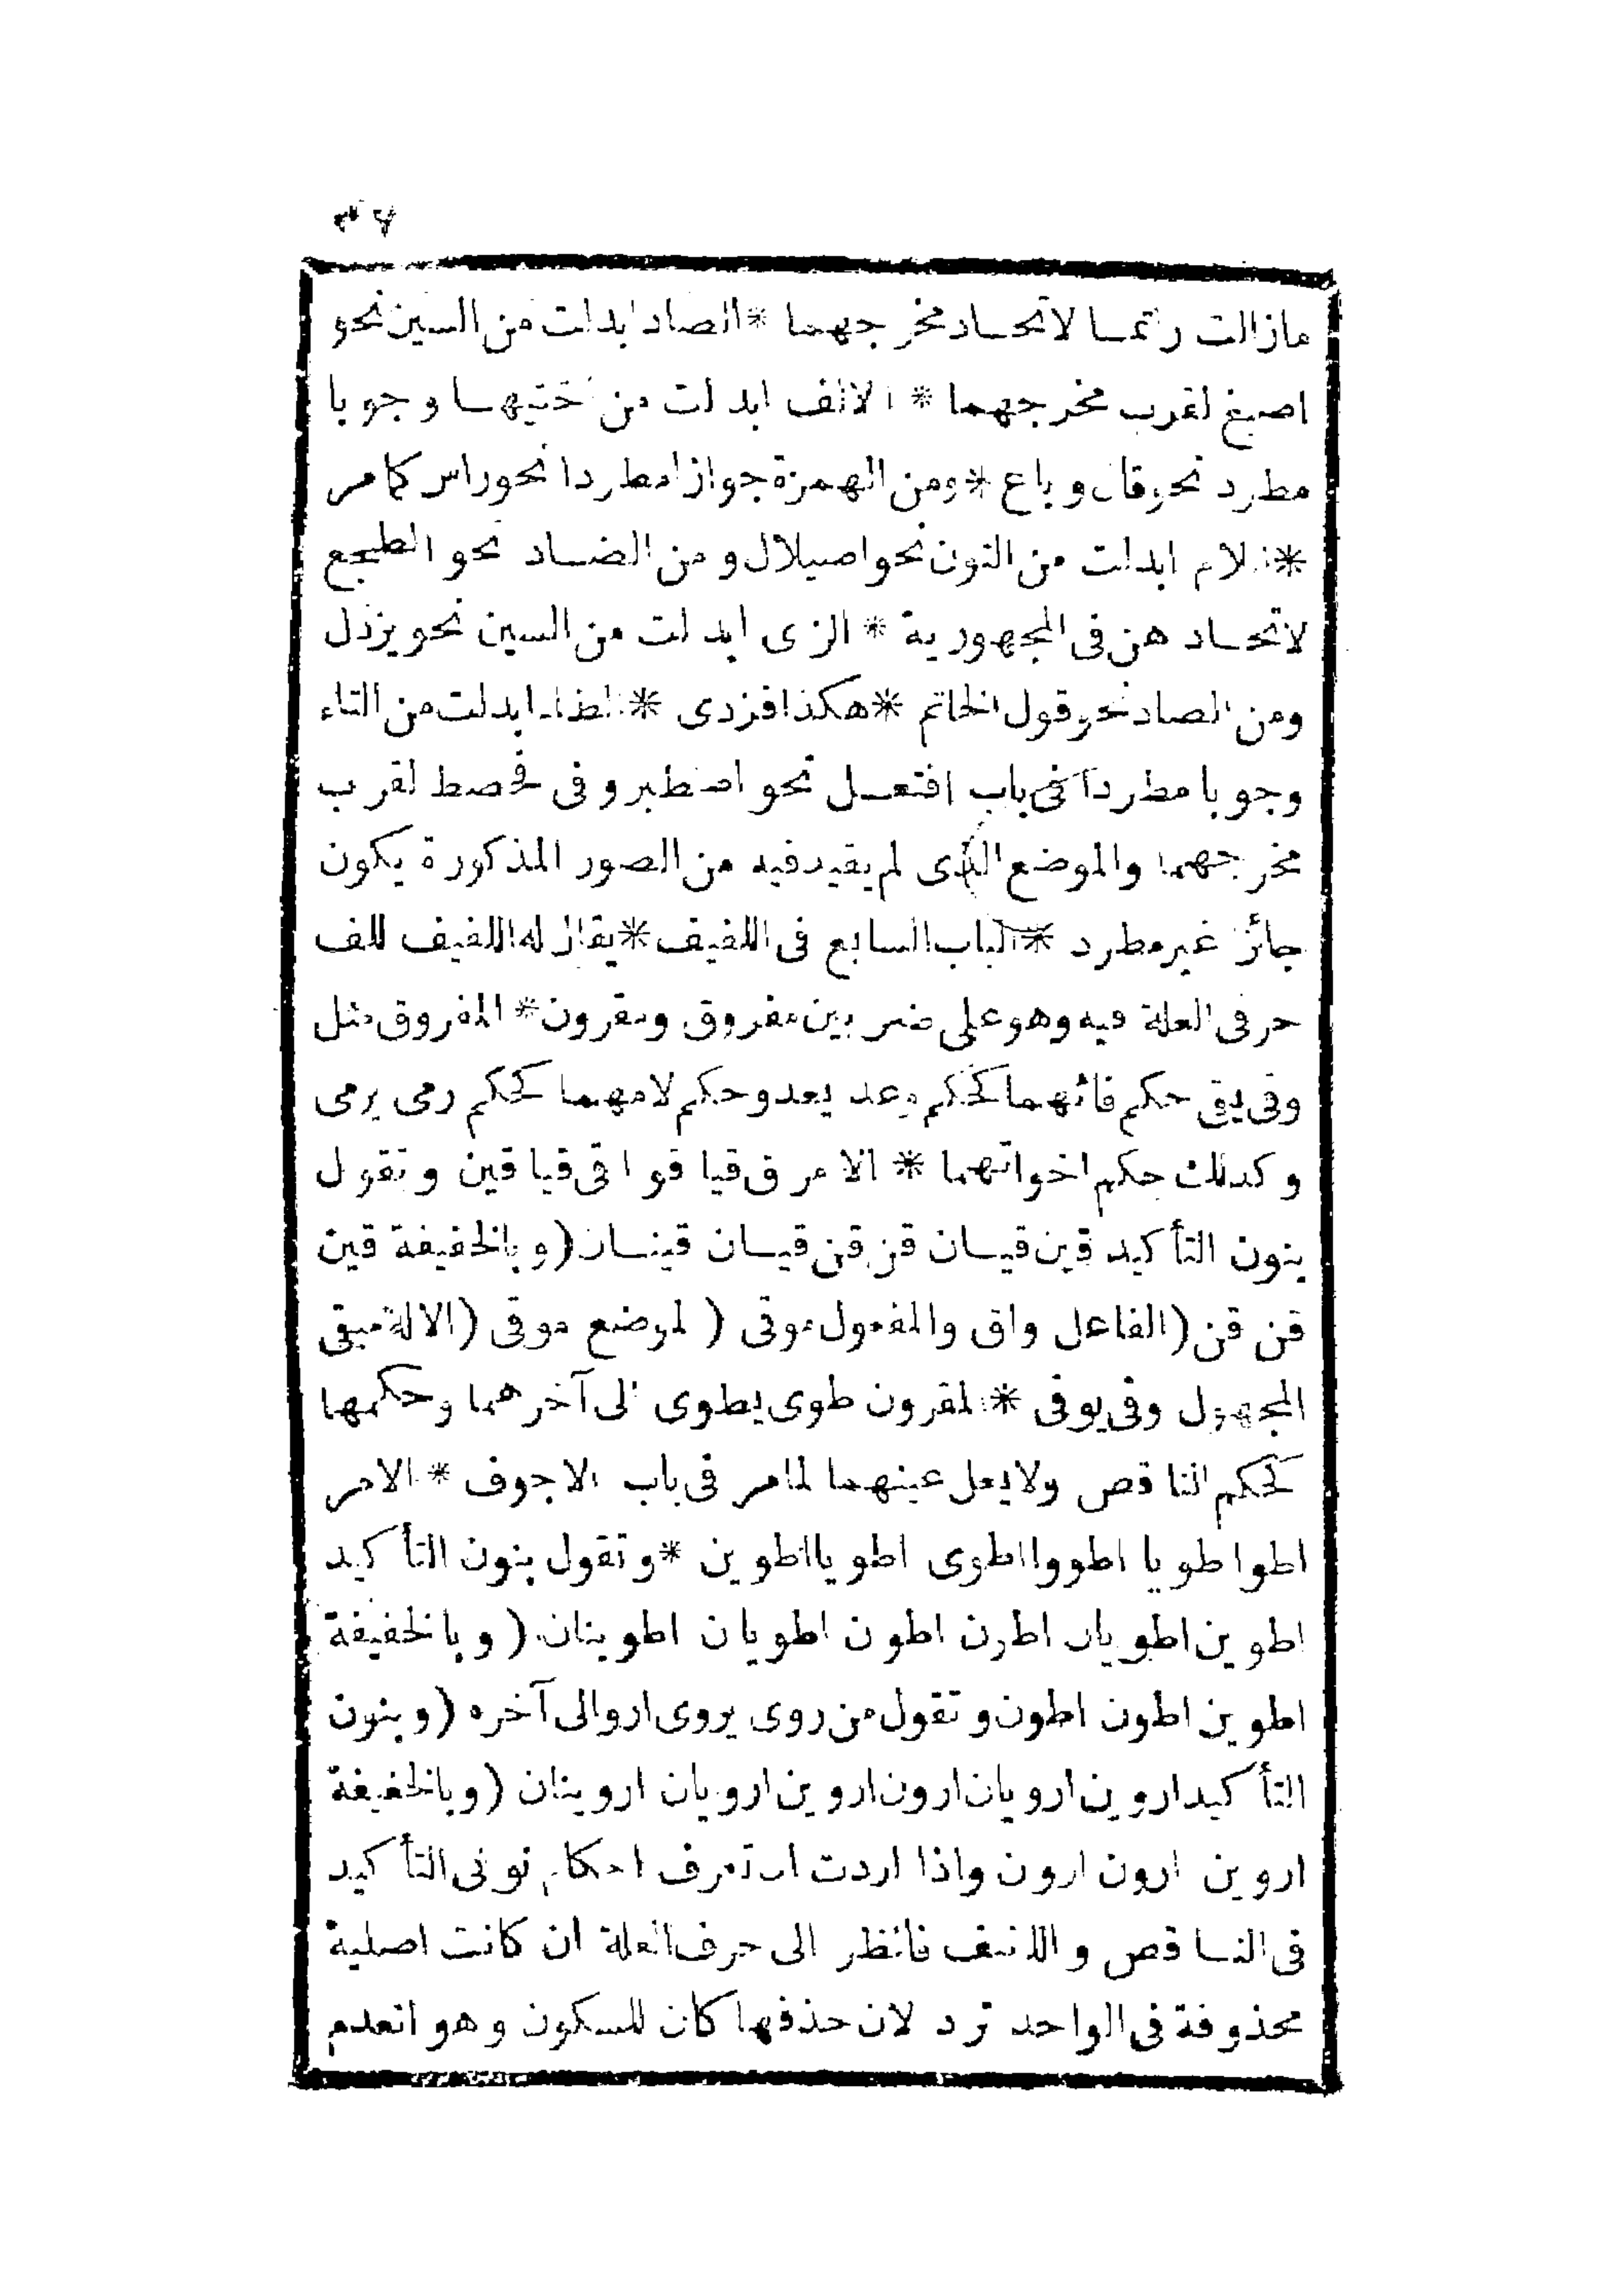 مازالت راتما لاتحاد مخرجهما * الصاد ابدلت من السين نحو
اصبغ لقرب مخرجهما * الالف ابدلت من اختيها وجوبا
مطرد نحو قال وباع * ومن الهمزة جوازا مطردا نحو راس كما مر
* اللام ابدلت من النون نحو اصيلال ومن الضاد نحو الطجع
لاتحاد هن فى المجهورية * الزى ابدلت من السين نحو يزدل
ومن الصاد نحو قول الخاتم * هكذا فزدى * الطاء ابدلت من التاء
وجوبا مطردا فى باب افتعل نحو اصطبر وفى فحصط لقرب
مخرجهما والموضع الذى لم يقيد فيه من الصور المذكورة يكون
جائز غير مطرد * الباب السابع فى اللفيف * يقال له اللفيف للف
حرفى العلة فيه وهو على ضربين مفروق ومقرون * المفروق مثل
وقى يقى حكم فائهما كحكم وعد يعد وحكم لامهما كحكم رمى يرمى
وكذلك حكم اخواتهما * الامر ق قيا قوا قى قيا قين وتقول
بنون التأكيد قين قيان قن قن قيان قينان (وبالخفيفة قين
قن قن (الفاعل واق والمفعول موقى (الموضع موقى (الالة ميقى
المجهول وقى يوقى * المقرون طوى يطوى الى آخرهما وحكمها
كحكم الناقص ولا يعل عينهما لما مر فى باب الاجوف * الامر
اطو اطويا اطووا اطوى اطويا اطوين * وتقول بنون التأكيد
اطوين اطويان اطون اطون اطويان اطوينان (وبالخفيفة
اطوين اطون اطون وتقول من روى يروى ارو الى آخره (وبنون
التأكيد اروين ارويان ارون اروين ارويان اروينان (وبالخفيفة
اروين ارون ارون واذا اردت ان تعرف احكام نونى التأكيد
فى الناقص واللفيف فانظر الى حرف العلة ان كانت اصلية
محذوفة فى الواحد ترد لان حذفها كان للسكون وهو انعدم